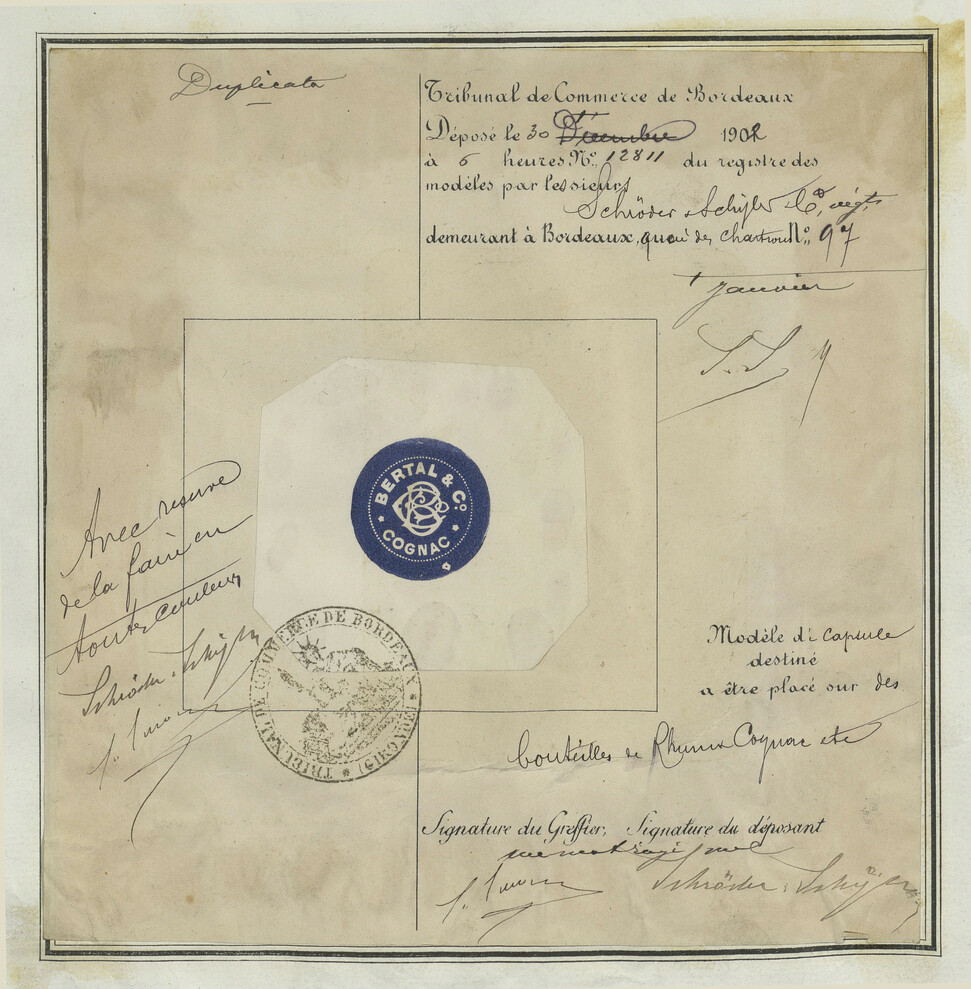 Duplicata
Tribunal de Commerce de Bordeaux
Déposé le 30 Décembre 1902
à 6 heures Nº 12811 du registre des
modèles par les sieurs
Schröder & Schÿler & Cº, négts
demeurant à Bordeaux, quai des Chartrons Nº 97
Janvier
S. S
BERTAL & Cº
COGNAC
Avec réserve
de la faire en
toutes couleurs
Schröder & Schÿler
TRIBUNAL DE COMMERCE DE BORDEAUX
(GIRONDE)
Modèle de Capsule
destiné
a être placé sur des
bouteilles de Rhum Cognac etc
Signature du Greffier, Signature du déposant
un mot rayé nul
Schröder & Schÿler